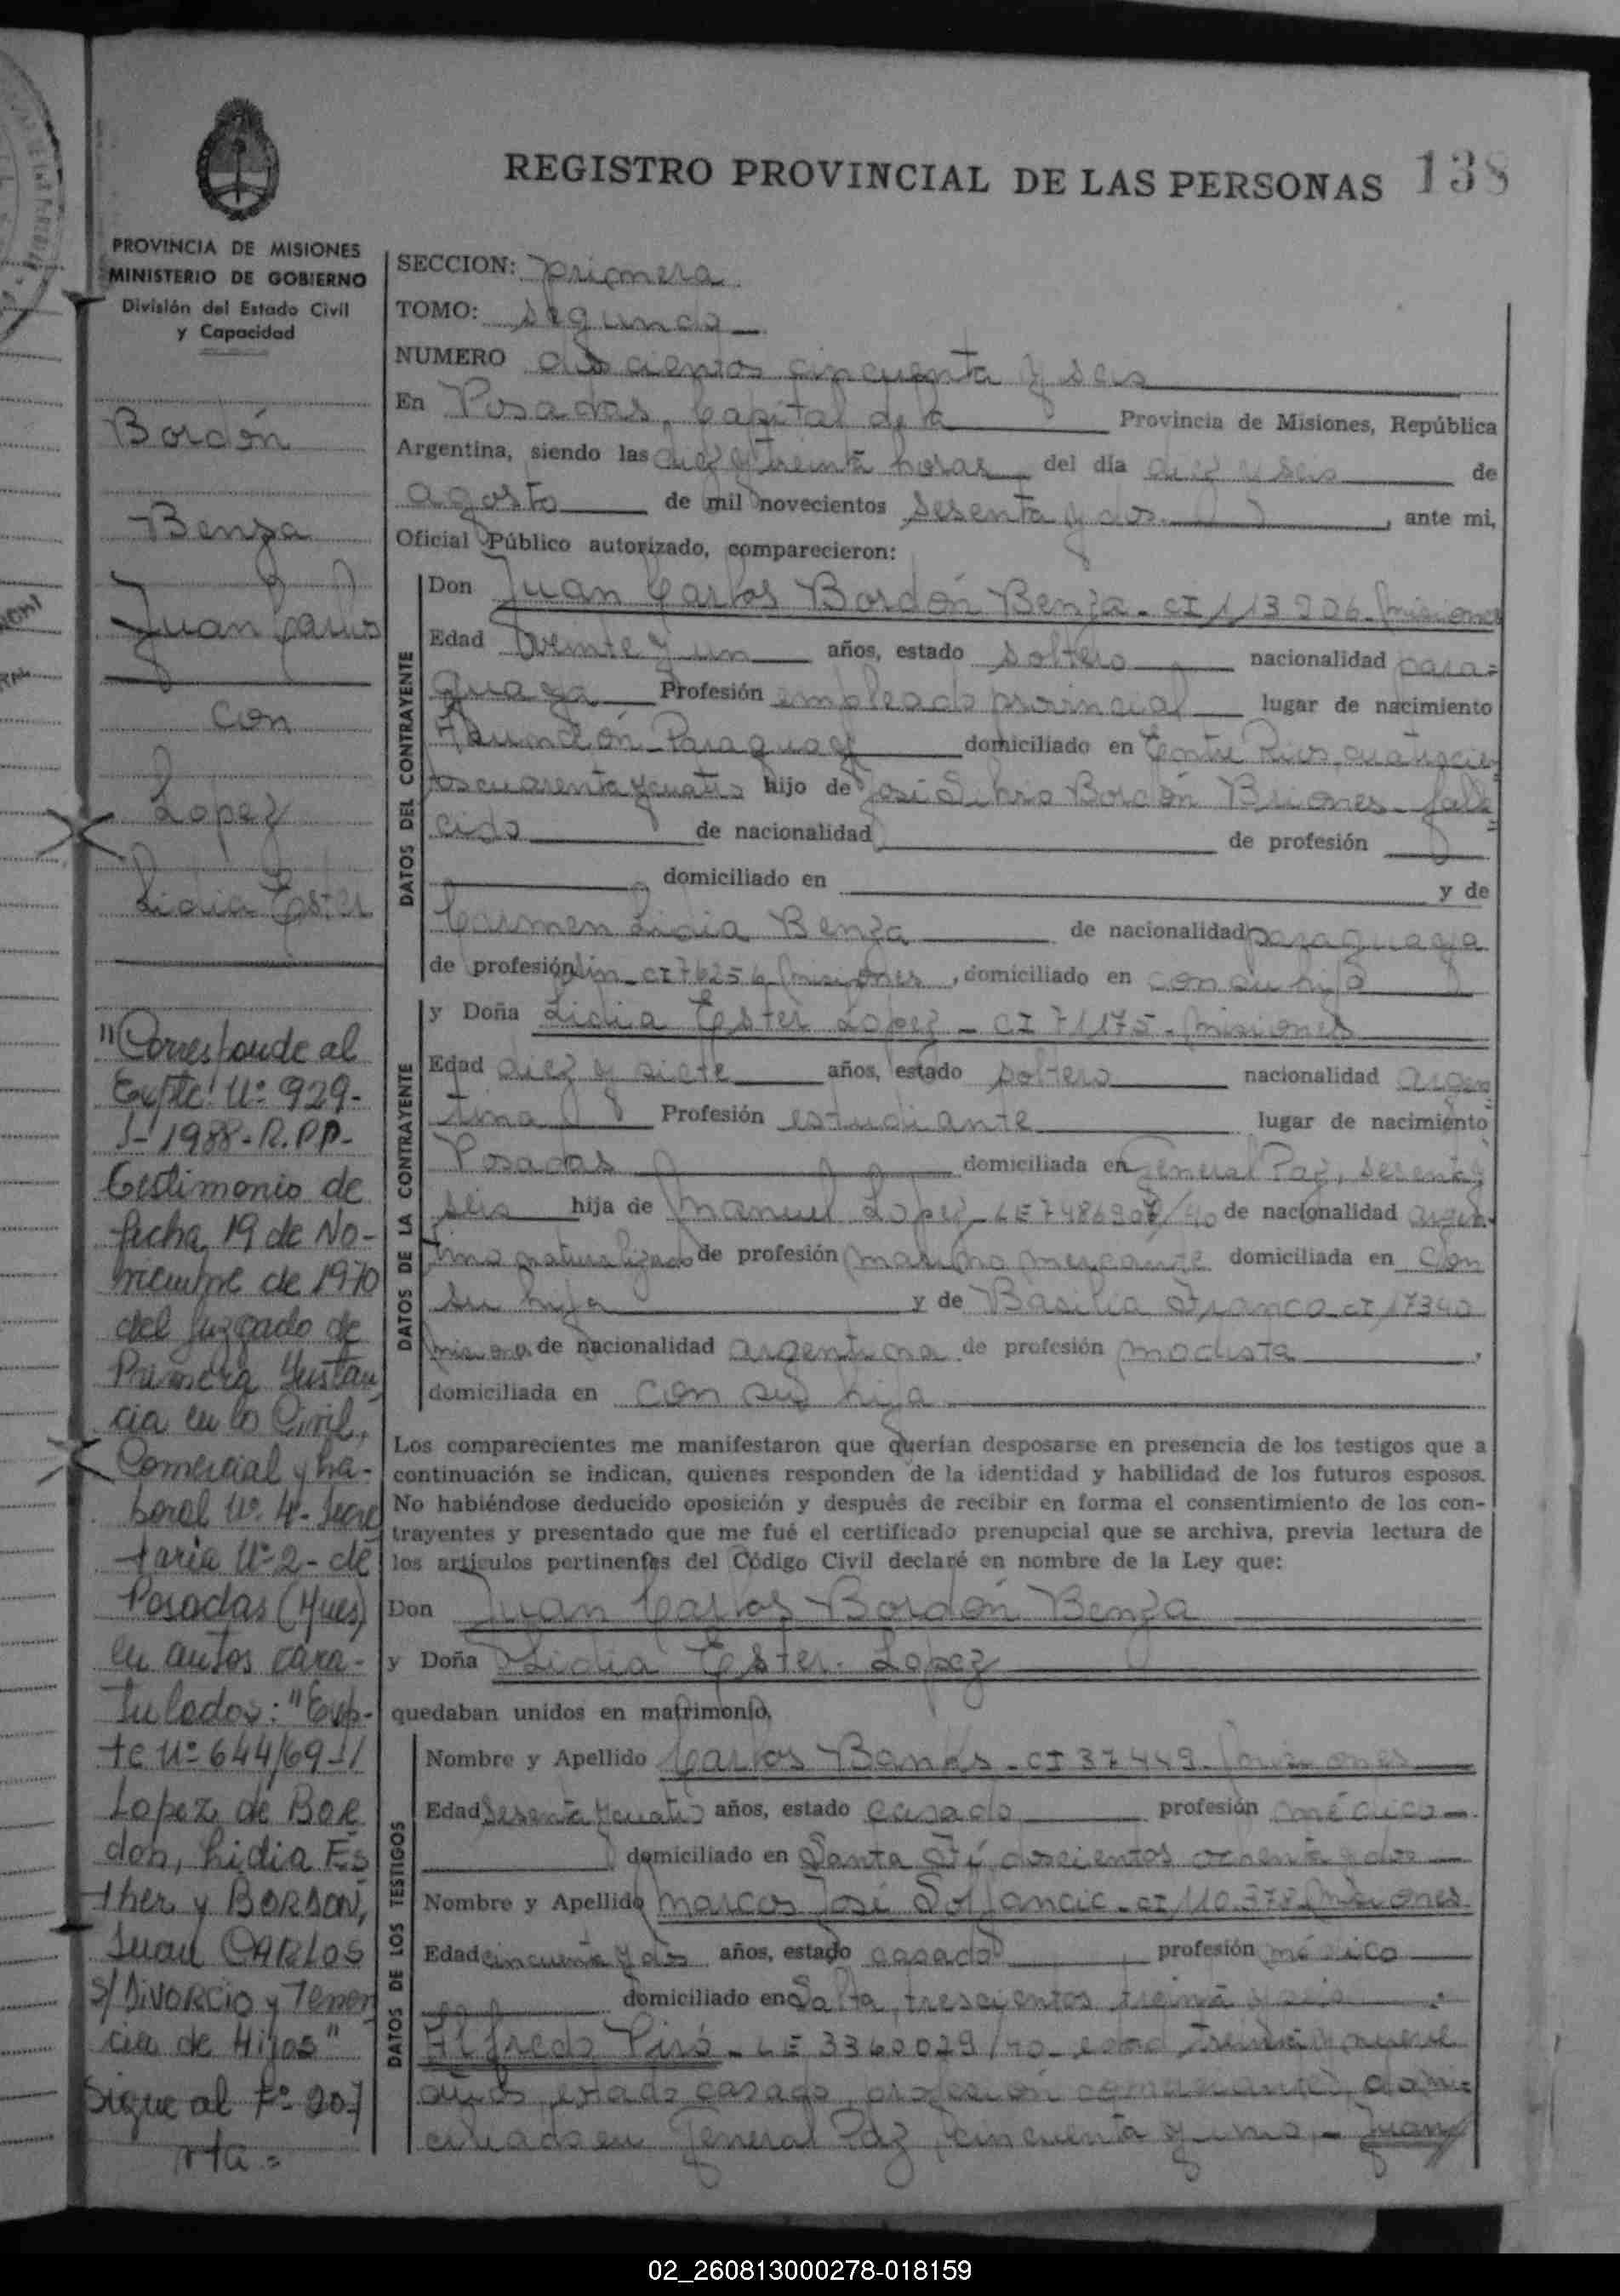 REGISTRO PROVINCIAL DE LAS PERSONAS 138
PROVINCIA DE MISIONES
MINISTERIO DE GOBIERNO
División del Estado Civil
y Capacidad
Bordón
Benza
Juan Carlos
con
Lopez
Lidia Ester
"Corresponde al
Expte. Nº 929-
1988-R.P.P-
Testimonio de
fecha 19 de No-
viembre de 1970
del Juzgado de
Primera Instan
cia en lo Civil,
Comercial y La-
boral Nº 4- Secre
taria Nº 2- de
Posadas (Mnes)
en autos cara-
tulados: "Exp-
te Nº 644/69
Lopez de BOR
don, Lidia Es
ther y BORDON,
Juan CARLOS
s/ DIVORCIO y Tenen
cia de Hijos"
Sigue al Fº 207
vta=
SECCION: primera
TOMO: segundo
NUMERO doscientos cincuenta y seis
En Posadas, Capital de la Provincia de Misiones, República
Argentina, siendo las diez y treinta horas del día diez y seis de
agosto de mil novecientos sesenta y dos, ante mi,
Oficial Público autorizado, comparecieron:
DATOS DEL CONTRAYENTE
Don Juan Carlos Bordón Benza - CI 113906 - Misiones
Edad veinte y un años, estado soltero nacionalidad para=
guaya Profesión empleado provincial lugar de nacimiento
Asunción - Paraguay domiciliado en Entre Rios, cuatrocien
tos cuarenta y cuatro hijo de José Silvio Bordón Briones - falle
cido de nacionalidad de profesión
domiciliado en y de
Carmen Lidia Benza de nacionalidad paraguaya
de profesión sin - CI 76256 Misiones, domiciliado en con su hijo
DATOS DE LA CONTRAYENTE
y Doña Lidia Ester Lopez - CI 71175 - Misiones
Edad diez y siete años, estado soltera nacionalidad argen
tina Profesión estudiante lugar de nacimiento
Posadas domiciliada en General Paz, sesenta y
seis hija de Manuel Lopez - LE 7486907/40 de nacionalidad argen-
tino naturalizado de profesión marino mercante domiciliada en con
su hija y de Basilia Franco CI 17340
Misiones de nacionalidad argentina de profesión modista,
domiciliada en con su hija
Los comparecientes me manifestaron que querían desposarse en presencia de los testigos que a
continuación se indican, quienes responden de la identidad y habilidad de los futuros esposos.
No habiéndose deducido oposición y después de recibir en forma el consentimiento de los con-
trayentes y presentado que me fué el certificado prenupcial que se archiva, previa lectura de
los artículos pertinentes del Código Civil declaré en nombre de la Ley que:
Don Juan Carlos Bordón Benza
y Doña Lidia Ester Lopez
quedaban unidos en matrimonio.
DATOS DE LOS TESTIGOS
Nombre y Apellido Carlos Banks - CI 37449 - Misiones
Edad sesenta y cuatro años, estado casado profesión médico
domiciliado en Santa Fé, doscientos ochenta y dos
Nombre y Apellido Marcos José - CI 110.378 Misiones
Edad cincuenta y dos años, estado casado profesión médico
domiciliado en Salta, trescientos treinta y seis
Alfredo Piró - LE 3360029/40 - edad treinta y nueve
años, estado casado, profesión comerciante, domi=
ciliado en General Paz, cincuenta y uno, - Juan
02_260813000278-018159